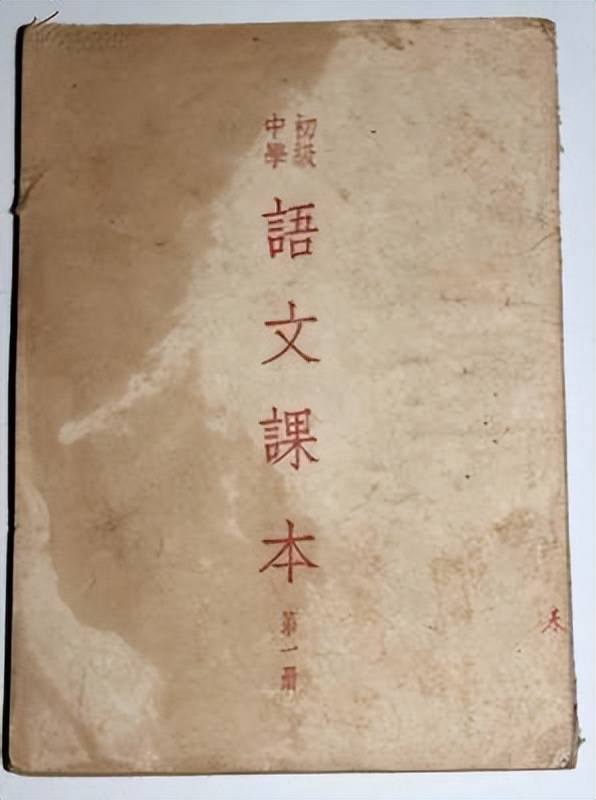 初級
中學
語文課本
第一册